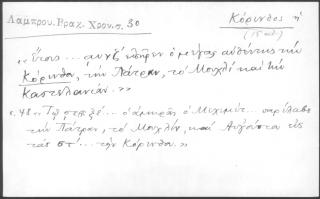 Λαμπρου. Βραχ. Χρον. σ. 30
Κόρινθος ἡ
(15 αἰ.)
«Ἔτους ... ἐπῆρεν ὁ μέγας αὐθέντης τὴν
Κόρινθον, τὴν Πάτραν, τὸ Μουχλὶ καὶ τὴν
Καστελιανὰν.»
σ. 48 «Τῷ ͵ϛϡξϛ´... ὁ ἀμηρᾶς ὁ Μεχεμὲτ ... παρέλαβε
τὴν Πάτραν, τὸ Μουχλὴν, καὶ Αὐγούστα εἰς
τὰς ϛτ´ ... τὴν Κόρινθον.»